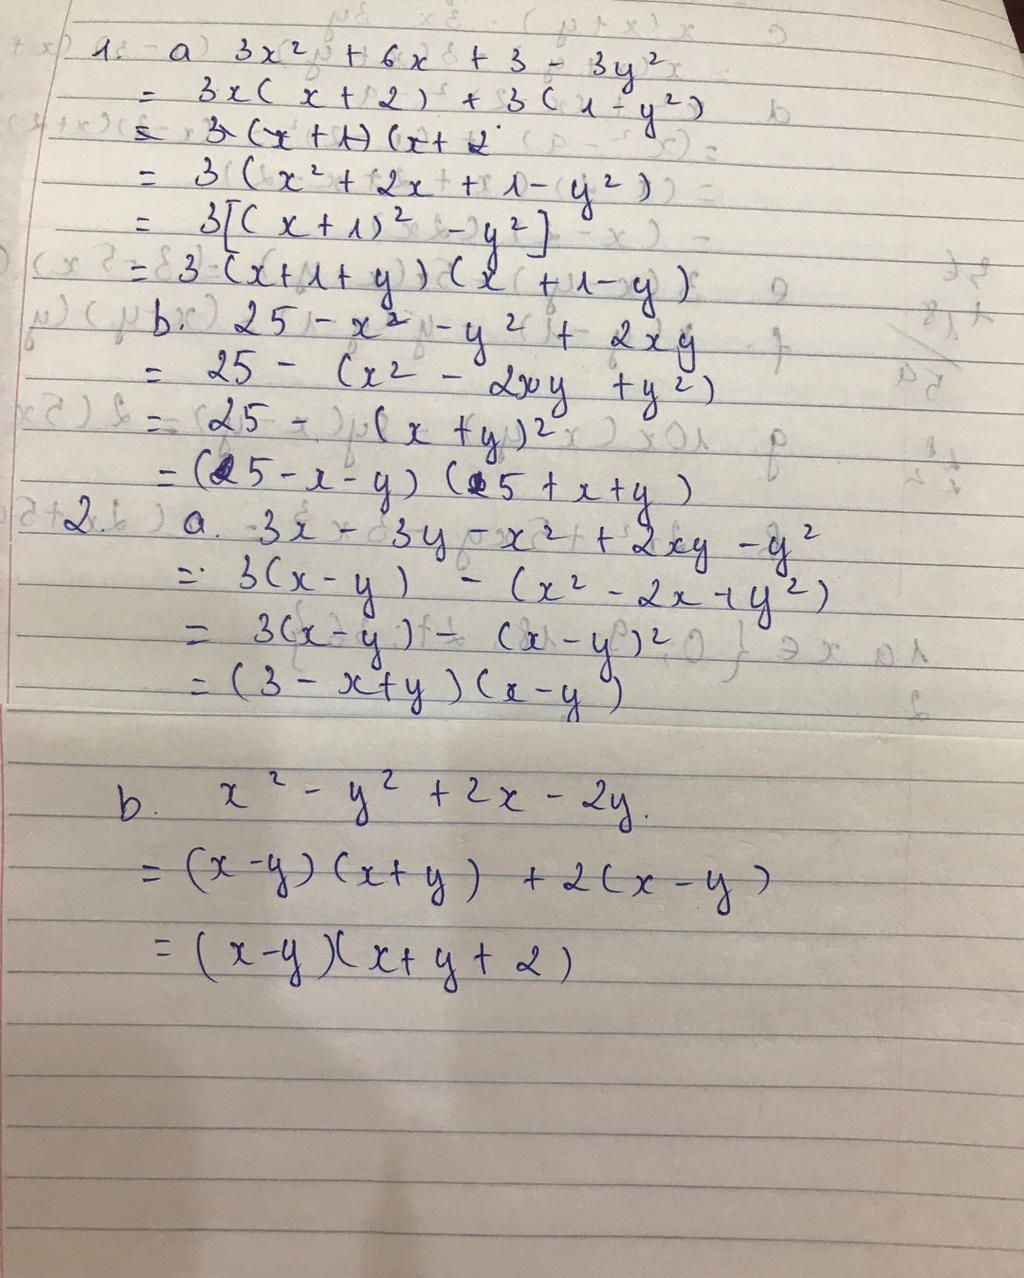 1. a 3x² + 6x + 3 - 3y²
= 3x(x + 2) + 3(1 - y²)
= 3(x + 1)(x + 2
= 3(x² + 2x + 1 - y²)
= 3[(x + 1)² - y²]
= 3(x+1+y)(x+1-y)
b. 25 - x² - y² + 2xy
= 25 - (x² - 2xy + y²)
= 25 - (x + y)²
= (5 - x - y)(5 + x + y)
2. a. 3x - 3y - x² + 2xy - y²
= 3(x - y) - (x² - 2x + y²)
= 3(x - y) - (x - y)²
= (3 - x + y)(x - y)
b. x² - y² + 2x - 2y.
= (x - y)(x + y) + 2(x - y)
= (x - y)(x + y + 2)